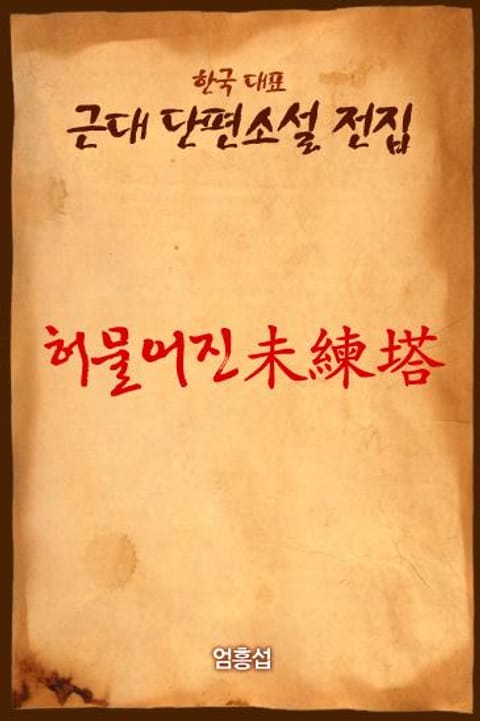 한국 대표
근대 단편소설 전집
허물어진 未練塔
엄흥섭